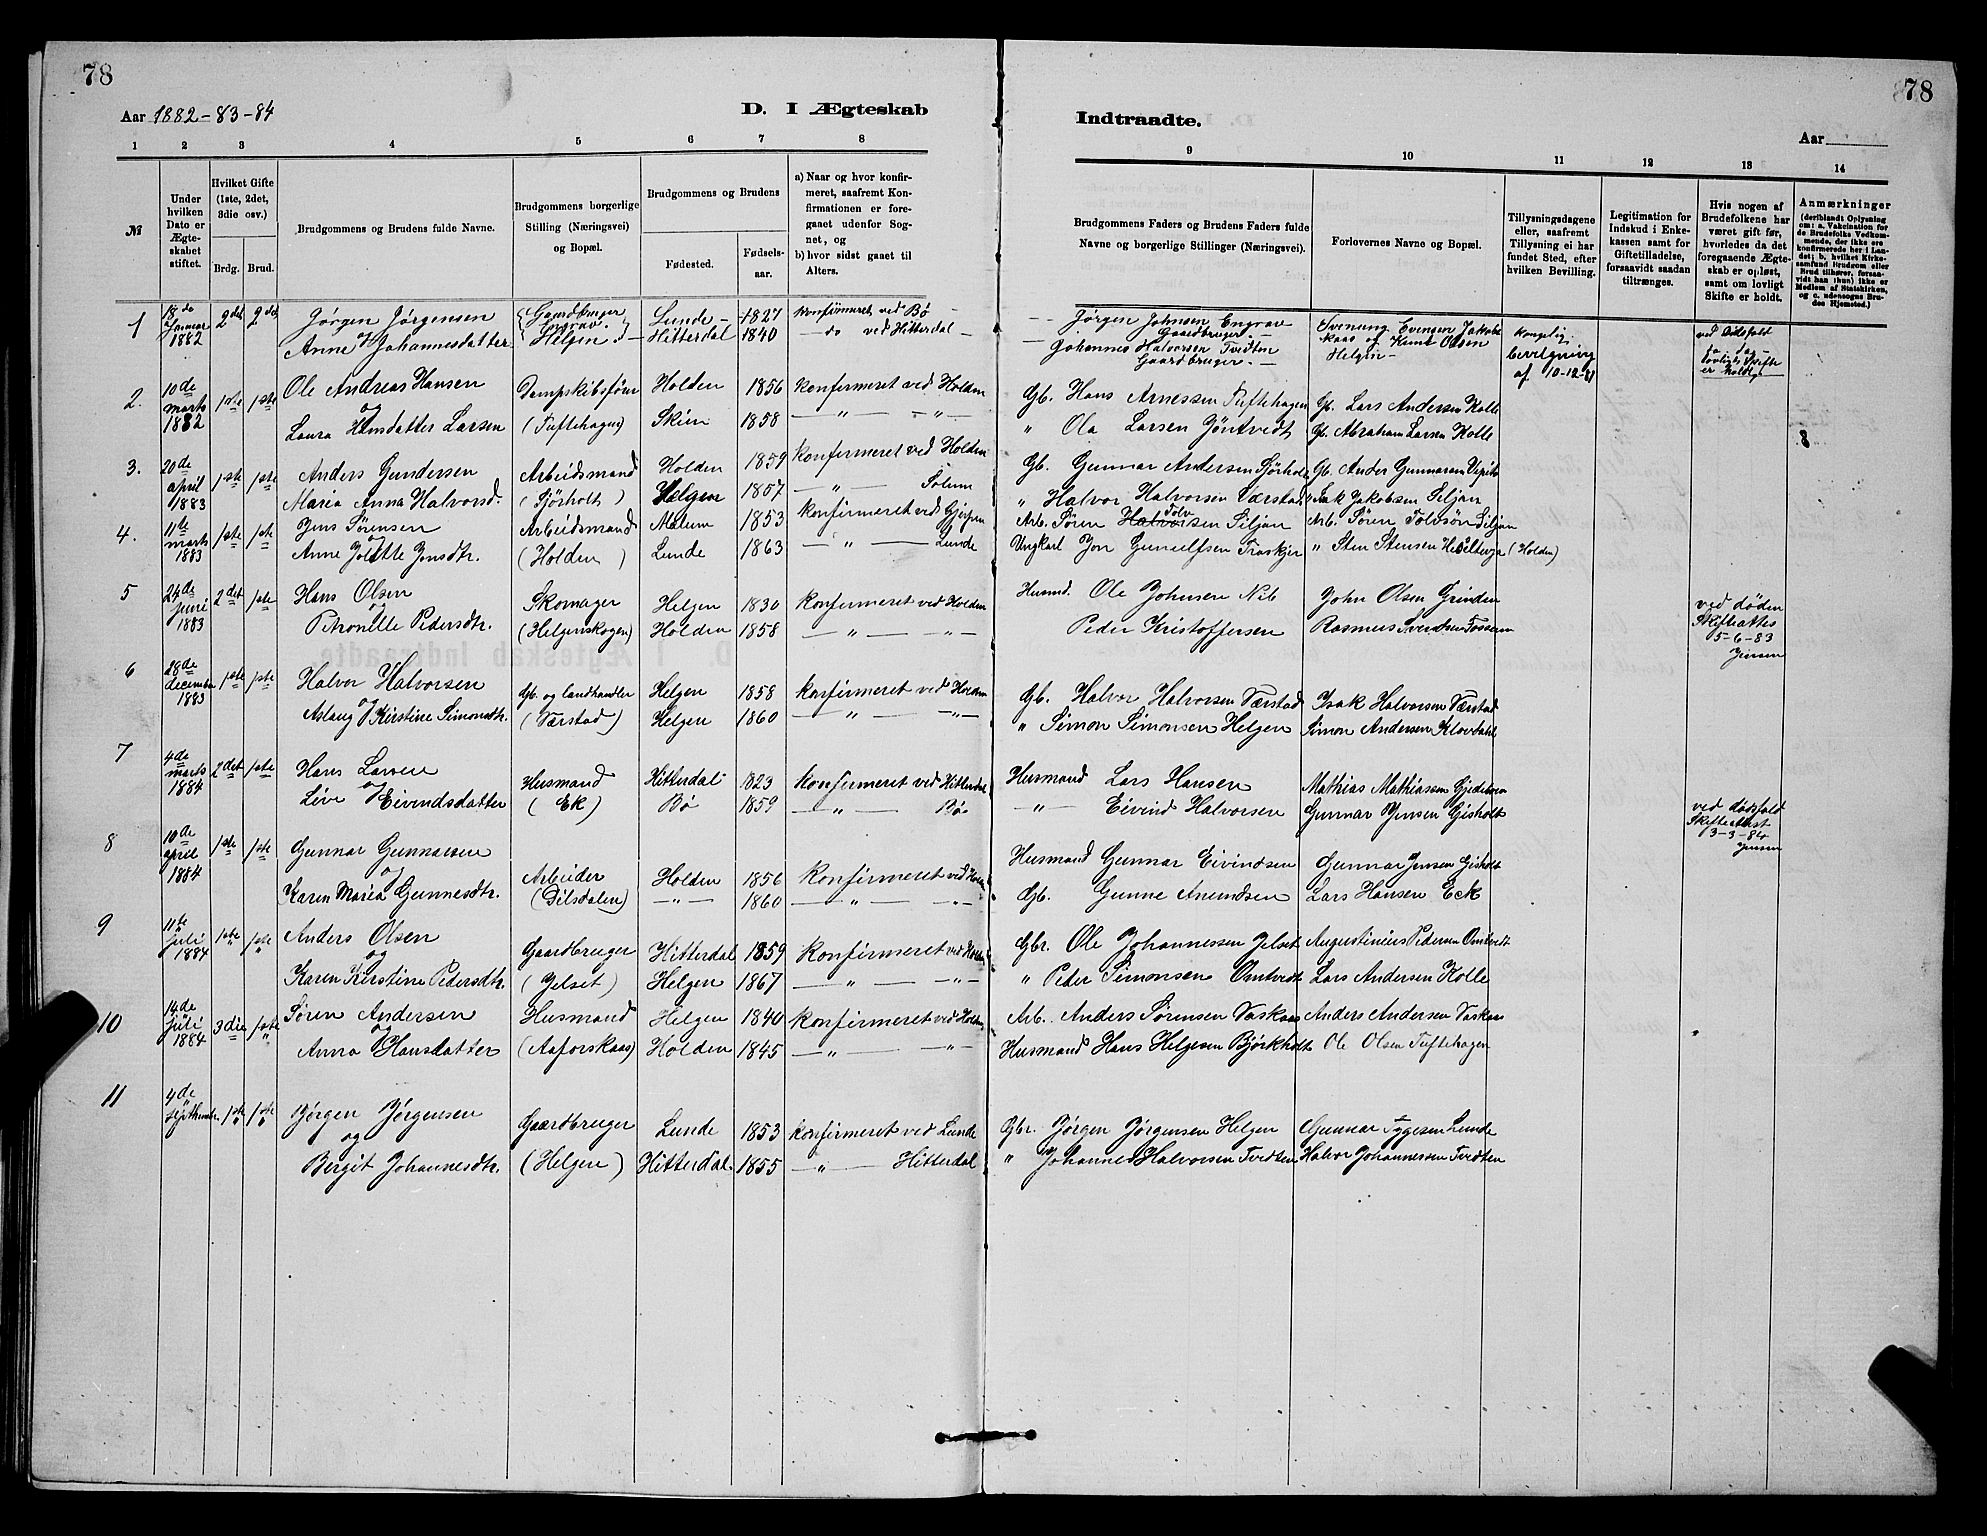 78
78
Aar 1882-83-84
D. I Ægteskab
Indtraadte.
Aar
1 2 3 4 5 6 7 8
9 10 11 12 13 14
№
Under hvilken Dato er Ægteskabet stiftet.
Hvilket Gifte (1ste, 2det, 3die osv.)
Brdg. Brud.
Brudgommens og Brudens fulde Navne.
Brudgommens borgerlige Stilling (Næringsvei) og Bopæl.
Brudgommens og Brudens
Fødested.
Fødsels-aar.
a) Naar og hvor konfir-
meret, saafremt Kon-
firmationen er fore-
gaaet udenfor Sog-
net, og
b) hvor sidst gaaet til
Alters.
Brudgommens Faders og Brudens Faders fulde
Navne og borgerlige Stillinger (Næringsvei).
Forlovernes Navne og Bopæl.
Tillysningsdagene
eller, saafremt
Tillysning ei har
fundet Sted, efter
hvilken Bevilling.
Legitimation for
Indskud i Enke-
kassen samt for
Giftetilladelse,
forsaavidt saadan
tiltrænges.
Hvis nogen af
Brudefolkene har
været gift før,
hvorledes da det
foregaaende Ægte-
skab er opløst,
samt om lovligt
Skifte er holdt.
Anmærkninger
(deriblandt Oplysning
om: a. Vakcination for
de Brudefolks Vedkom-
mende, der ikke ere
konfirmerede her i Lan-
det; b. hvilket Kirke-
samfund Brudgom eller
Brud tilhører, forsaa-
vidt han (hun) ikke er
Medlem af Statskirken,
og c. udensogns Bru-
des Hjemsted.)
1 18de Januar 1882 2det 2det Jørgen Jørgensen Gaardbruger Engrav. Lunde 1827 konfirmeret ved Bø
Anne Johannesdatter Helgen Hitterdal 1840 do ved Hitterdal
Jørgen Johnsen Engrav Gaardbruger
Johannes Halvorsen Tvedten Gaardbruger
Helgen
kongelig bevilgning af 10-12-81
ved Dødsfald
2. 10de marts 1882 1ste 1ste Ole Andreas Hansen Dampskibsfører Holden 1856 konfirmeret ved Holden
og
Laura Hansdatter Larsen (Tuftehagen) Skien 1858 — " — — " —
Gb. Hans Arnessen Tuftehagen Gb. Lars Andersen Kolle
" Ola Larsen Jøntvedt Gb. Abraham Larsen Kolle
3. 20de april 1883 1ste 1ste Anders Gundersen Arbeidsmand Holden 1859 konfirmeret ved Holden
Maria Anna Halvorsd. (Sjørholt) Helgen 1857 — " — Solum
Gb. Gunnar Andersen Sjørholt
" Halvor Halvorsen Værstad " Isak Jakobsen Siljan
4. 11te marts 1883 1ste 1ste Jens Sørensen Arbeidsmand Melum 1853 konfirmeret ved Gjerpen
og
Anne Jonsdtr. (Holden) Lunde 1863 — " — Lunde
Arb. Søren Halvorsen Tolv Siljan Arb. Søren Tolvsøn Siljan
Ungkarl Jon (Holden)
5 24de juni 1883 2det 1ste Hans Olsen Skomager Helgen 1830 konfirmeret ved Holden
og
Petronille Pedersdtr. (Helgenskogen) Holden 1858 — " — — " —
Husmd. Ole Johnsen Neb John Olsen Grinden
Peder Kristoffersen Rasmus Svendsen Fossum
ved døden
Skifteattes
5-6-83
Jensen
6 28de december 1883 1ste 1ste Halvor Halvorsen Gb. og landhandler Helgen 1858 konfirmeret ved Holden
og
Aslaug Kirstine Simonsdtr. (Værstad) Helgen 1860 — " — — " —
Gb. Halvor Halvorsen Værstad Isak Halvorsen Værstad
" Simon Simonsen Helgen Simon Andersen Klovdahl
7 4de marts 1884 2det 1ste Hans Larsen Husmand Hitterdal 1823 konfirmeret ved Hitterdal
og
Live Eivindsdatter (Ek) Bø 1859 — " — Bø
Husmand Lars Hansen Mathias Mathiassen
— " — Eivind Halvorsen Gunnar Jensen Gisholt
ved dødsfald
Skifteattest
3-3-84
Jensen
8 10de april 1884 1ste 1ste Gunnar Gunnarsen Arbeider Holden 1856 konfirmeret ved Holden
og
Karen Maria Gunnesdtr. (Dilsdalen) — " — 1860 — " — — " —
Husmand Gunnar Eivindsen Gunnar Jensen Gisholt
Gb. Gunne Amundsen Lars Hansen Eck
9 11te juli 1884 1ste 1ste Anders Olsen Gaardbruger Hitterdal 1859 konfirmeret ved Holden
og
Karen Kirstine Pedersdtr. (Jelset) Helgen 1867 — " — — " —
Gbr. Ole Johannessen Jelset Augustinius Pedersen Omtvedt
" Peder Simonsen Omtvedt Lars Andersen Kolle
10 14de juli 1884 3die 1ste Søren Andersen Husmand Helgen 1840 konfirmeret ved Holden
og
Anna Hansdatter (Aaforskaas) Holden 1845 — " — — " —
Arb. Anders Sørensen Vaskaas Anders Andersen Vaskaas
Husmand Hans Helgesen Bjørkholt Ole Olsen Tuftehagen
11 4de september 1ste 1ste Jørgen Jørgensen Gaardbruger Lunde 1853 konfirmeret ved Lunde
og
Bergit Johannesdtr. (Helgen) Hitterdal 1855 — " — Hitterdal
Gbr. Jørgen Jørgensen Helgen Gunnar Tygesen Lunde
" Johannes Halvorsen Tvedten Halvor Johannessen Tvedten